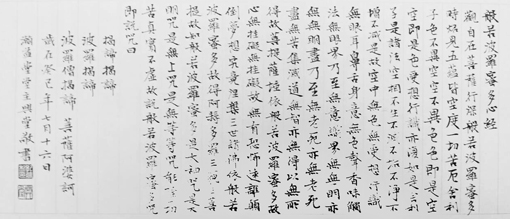 般若波羅蜜多心經
觀自在菩薩行深般若波羅蜜多
時照見五蘊皆空度一切苦厄舍利
子色不異空空不異色色即是空
空即是色受想行識亦復如是舍利
子是諸法空相不生不滅不垢不淨不
增不減是故空中無色無受想行識
無眼耳鼻舌身意無色聲香味觸
法無眼界乃至無意識界無無明亦
無無明盡乃至無老死亦無老死
盡無苦集滅道無智亦無得以無所
得故菩提薩埵依般若波羅蜜多故
心無挂礙無挂礙故無有恐怖遠離顛
倒夢想究竟涅槃三世諸佛依般若
波羅蜜多故得阿耨多羅三藐三菩
提故知般若波羅蜜多是大神咒是大
明咒是無上咒是無等等咒能除一切
苦真實不虛故說般若波羅蜜多咒
即說咒曰
揭諦揭諦
波羅揭諦
波羅僧揭諦 菩薩阿婆訶
歲在癸巳年七月十六日
敬書